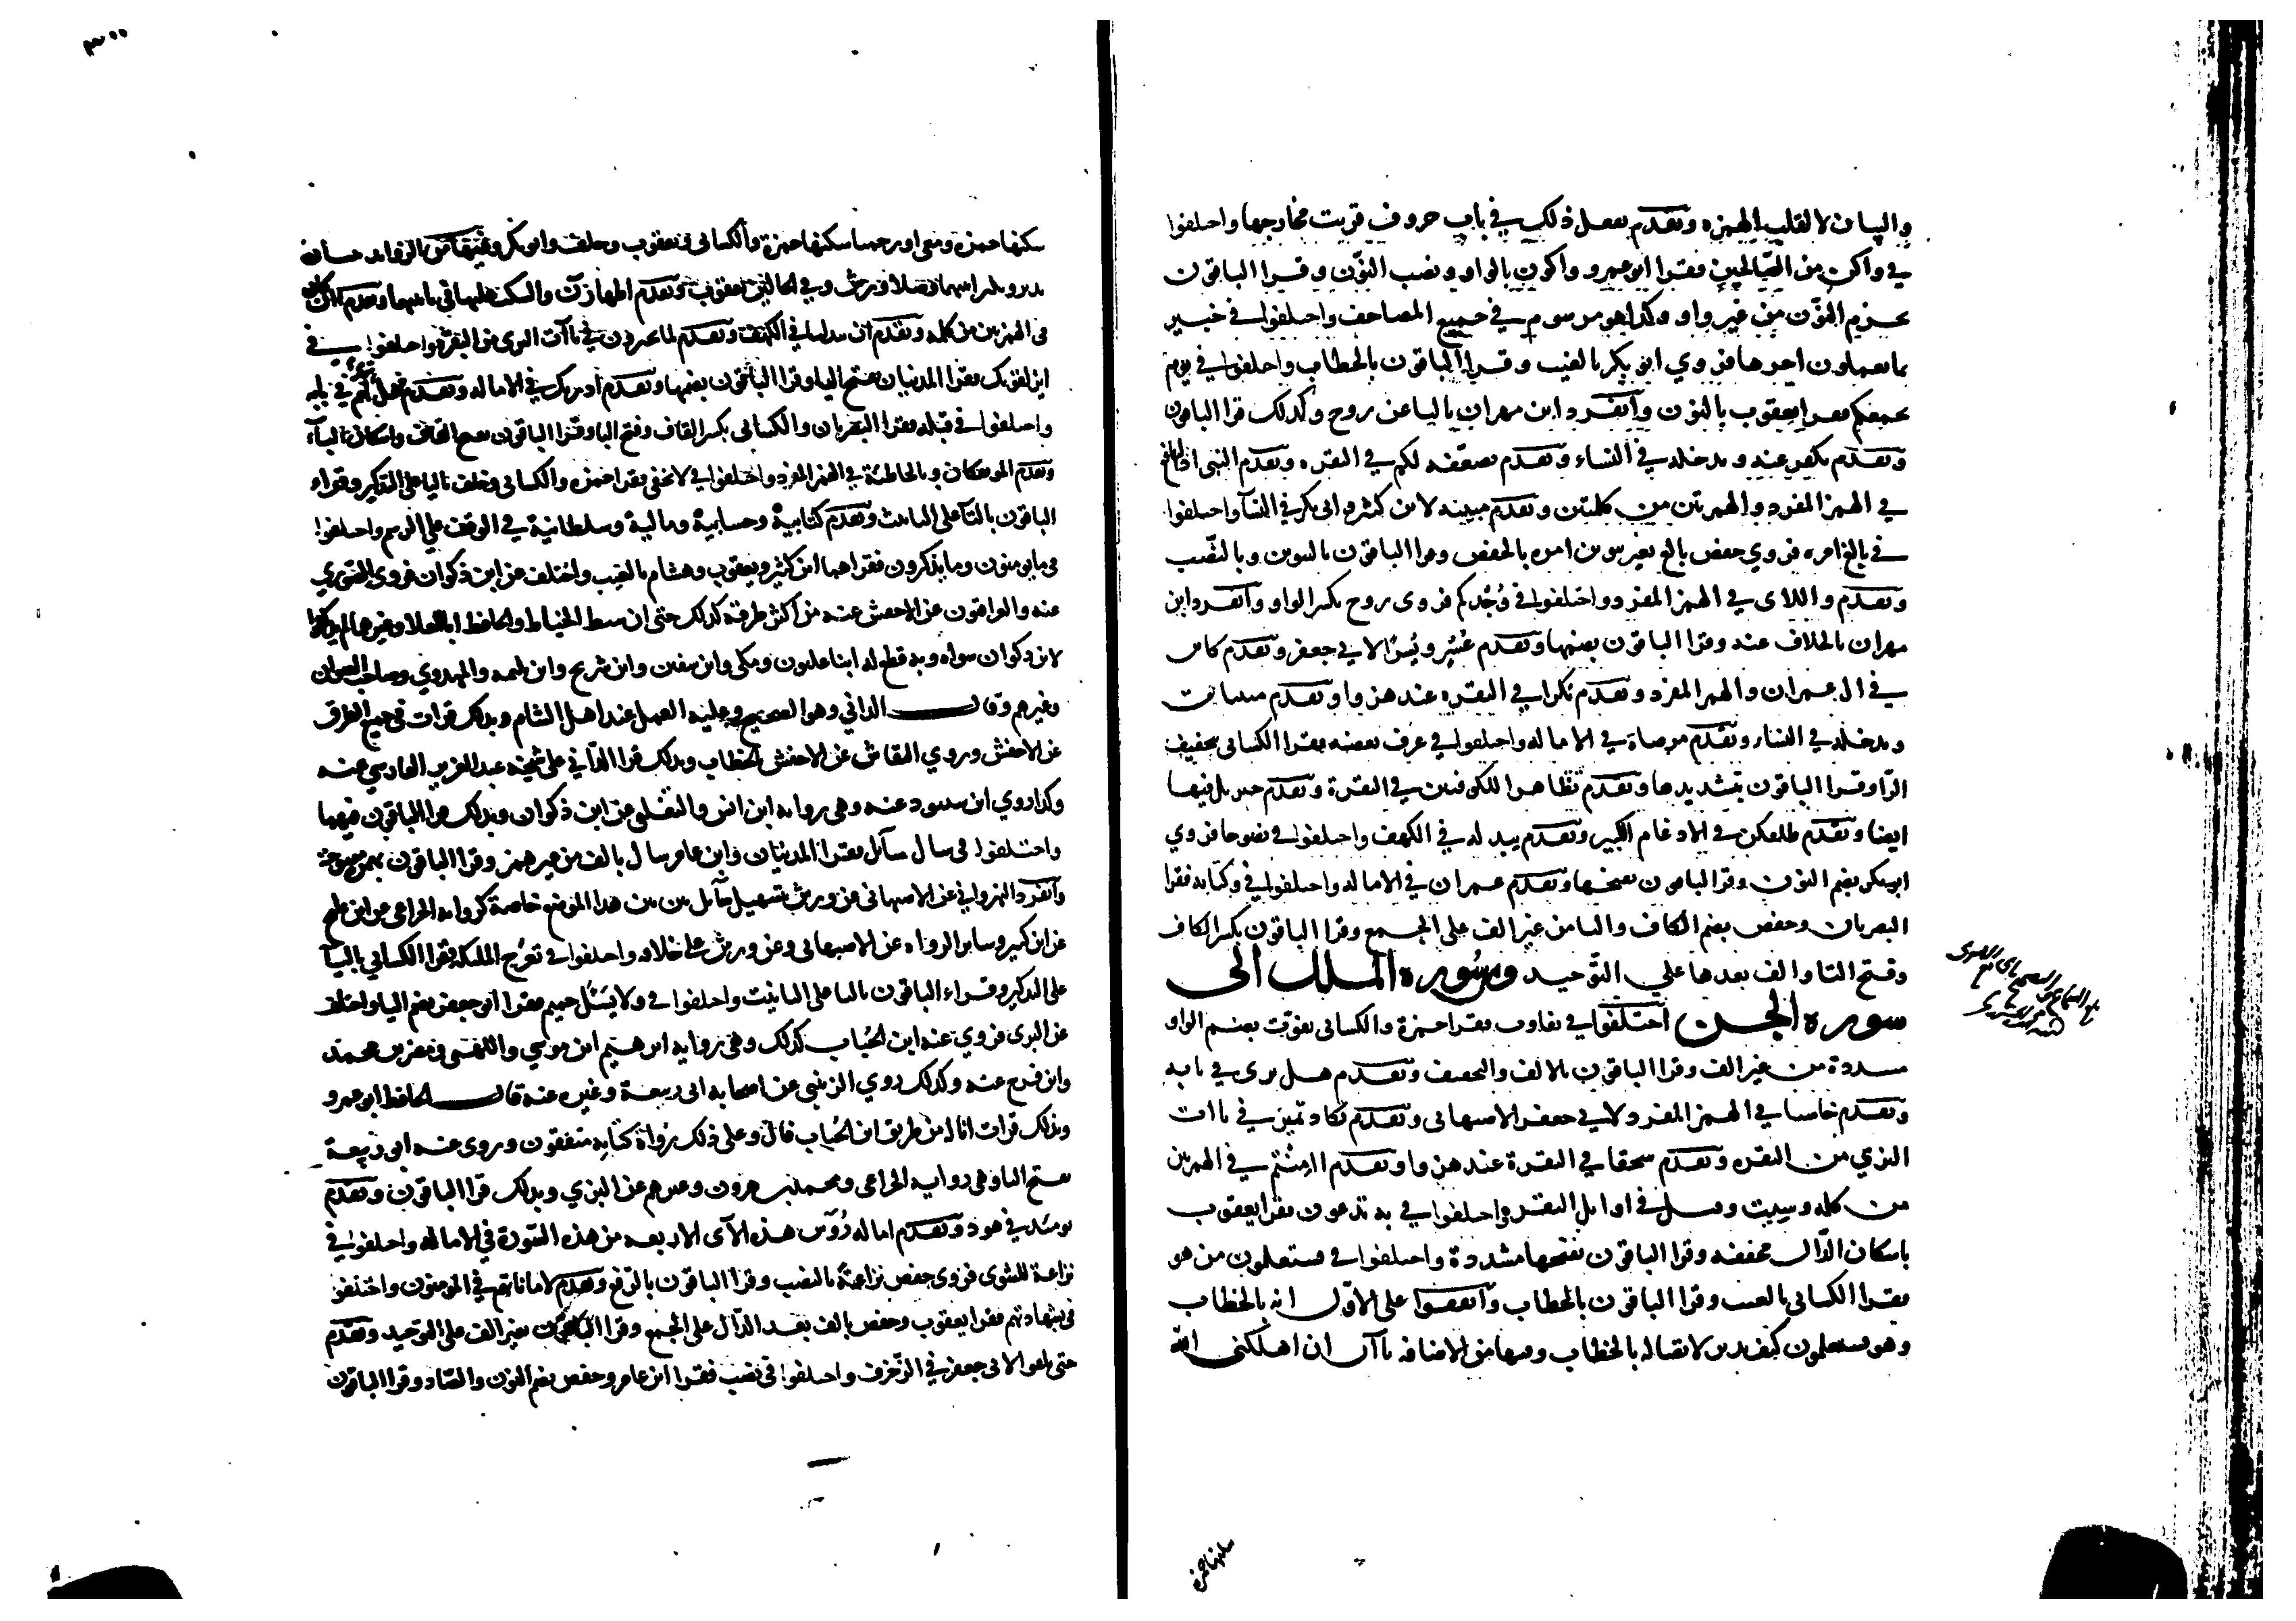 والبيان لا لقلب الهمزه وتقدم تفصل ذلك في باب حروف قربت مخارجها واختلفوا
في واكن من الصالحين فقرا ابو عمرو واكون بالواو ونصب النون وقرا الباقون
بجزم النون من غير واو وكذا هو مرسوم في جميع المصاحف واختلفوا في خبير
بما تعملون اخرها فروي ابو بكر بالغيب وقرا الباقون بالخطاب واختلفوا في يوم
يجمعكم فقرا يعقوب بالنون وانفرد ابن مهران باليا عن روح وكذلك قرا الباقون
وتقدم يكفر عنه ويدخله في النساء وتقدم يضعفه لكم في البقره وتقدم النبي اذا
في الهمز المفرد والهمزتين من كلمتين وتقدم مبينه لابن كثير وابي بكر في النسا واختلفوا
في بالغ امره فروي حفص بالغ بغير تنوين امره بالخفض وقرا الباقون بالتنوين وبالنصب
وتقدم واللاى في الهمز المفرد واختلفوا في وُجْدكم فروى روح بكسر الواو وانفرد ابن
مهران بالخلاف عنه وقرا الباقون بضمها وتقدم عُسْرٍ ويُسْرًا لابي جعفر وتقدم كاين
في ال عمران والهمز المفرد وتقدم نكرا في البقره عند هزوا وتقدم مبينات
ويدخله في النساء وتقدم مرضات في الاماله واختلفوا في عرف بعضه فقرا الكسائى بتخفيف
الرا وقرا الباقون بتشديدها وتقدم تظاهرا للكوفيين في البقرة وتقدم جبريل فيها
ايضا وتقدم طلقكن في الادغام الكبير وتقدم يبدله في الكهف واختلفوا في نصوحا فروي
ابو بكر بضم النون وقرا الباقون بفتحها وتقدم عمران في الاماله واختلفوا في وكتابه فقرا
البصريان وحفص بضم الكاف والتا من غير الف على الجمع وقرا الباقون بكسر الكاف
وفتح التا والف بعدها علي التوحيد ومن سورة الملك الى
سورة الجن اختلفوا في تفاوت فقرا حمزة والكسائى تفوت بضم الواو
مشددة من غير الف وقرا الباقون بالالف والتخفيف وتقدم هل ترى في بابه
وتقدم خاسيا في الهمز المفرد لابي جعفر والاصبهانى وتقدم تكاد تميز في تاات
البزي من البقره وتقدم سحقا في البقرة عند هزوا وتقدم اامنتم في الهمزتين
من كلمه وسيئت وقيل في اوايل البقره واختلفوا في به تدعون فقرا يعقوب
باسكان الدال مخففه وقرا الباقون بفتحها مشددة واختلفوا في فستعلمون من هو
فقرا الكسائى بالغيب وقرا الباقون بالخطاب واتفقوا على الاول انه بالخطاب
وهو فستعلمون كيف نذير لاتصاله بالخطاب وفيها من الاضافه ياآن ان اهلكنى الله
سكنها حمزة
٣٠٠
سكنها حمزة ومعى او رحمنا سكنها حمزة والكسائى ويعقوب وخلف وابو بكر ومن الزوايد
نذير ونكير اثبتهما وصلا ورش وفي الحالين يعقوب وتقدم اظهار ن والسكت عليها في بابهما وتقدم
في الهمزتين من كلمه وتقدم ان يبدلنا في الكهف وتقدم لما تخيرون في تاآت البزى من البقره واختلفوا في
ليزلقونك فقرا المدنيان بفتح اليا وقرا الباقون بضمها وتقدم ادريك في الاماله وتقدم فهل ترى في بابه
واختلفوا في قبله فقرا البصريان والكسائى بكسر القاف وفتح البا وقرا الباقون بفتح القاف واسكان البآء
وتقدم الموتفكات وبالخاطئة في الهمز المفرد واختلفوا في لا تخفى فقرا حمزه والكسائى وخلف باليا على التذكير وقراء
الباقون بالتآ على التانيث وتقدم كتابيهْ وحسابيهْ وماليه وسلطانيه في الوقف علي الرسم واختلفوا
في ما يومنون وما يذكرون فقراهما ابن كثير ويعقوب وهشام بالغيب واختلف عن ابن ذكوان فروى الصوري
عنه والعراقيون عن الاخفش عنه من اكثر طرقه كذلك حتى ان سبط الخياط والحافظ ابا العلا وغيرهما لم يذكروا
لابن ذكوان سواه وبه قطع له ابنا غلبون ومكى وابن سفين وابن شريح وابن بليمه والمهدوي وصاحب العنوان
وغيرهم وقال الداني وهو الصحيح وعليه العمل عند اهل الشام وبذلك قرات في جميع الطرق
عن الاخفش وروي النقاش عن الاخفش بالخطاب وبذلك قرا الداني على شيخه عبد العزيز الفارسي عنه
وكذا روي ابن شنبوذ عنه وهى روايه ابن انس والتغلبى عن ابن ذكوان وبذلك قرا الباقون فيهما
واختلفوا في سال سآئل فقرا المدنيان وابن عامر سال بالف من غير همز وقرا الباقون بهمزة مفتوحة
وانفرد النهرواني عن الاصبهانى عن ورش بتسهيل سآئل بين بين هذا الموضع خاصة كروايه الخزاعى عن ابن فليح
عن ابن كثير وساير الرواه عن الاصبهانى وعن ورش على خلافه واختلفوا في تعرج الملئكة فقرا الكسائي باليآ
على التذكير وقراء الباقون بالتا على التانيث واختلفوا في ولا يسئل حميم فقرا ابو جعفر بضم اليا واختلف
عن البزى فروي عنه ابن الحُباب كذلك وهى روايه ابرهيم ابن موسي واللهبى ونصر بن محمد
وابن فرح عنه وكذلك روي الزينبي عن اصحابه ابى ربيعة وغيره عنه قال الحافظ ابو عمرو
وبذلك قرات انا له من طريق ابن الحُباب قال وعلى ذلك رواة كتابه متفقون وروى عنه ابو ربيعة
بفتح اليا وهى روايه الخزاعى ومحمد بن هرون وغيرهم عن البزي وبذلك قرا الباقون وتقدم
يومئذ في هود وتقدم اماله رُؤس هذه الآى الاربعه من هذه السورة في الاماله واختلفوا في
نزاعة للشوى فروى حفص نزاعةً بالنصب وقرا الباقون بالرفع وتقدم لاماناتهم في المومنون واختلفوا
في بشهاداتهم فقرا يعقوب وحفص بالف بعد الدال على الجمع وقرا الباقون بغير الف على التوحيد وتقدم
حتى يلقوا لابى جعفر في الزخرف واختلفوا في نصب فقرا ابن عامر وحفص بضم النون والصاد وقرا الباقون